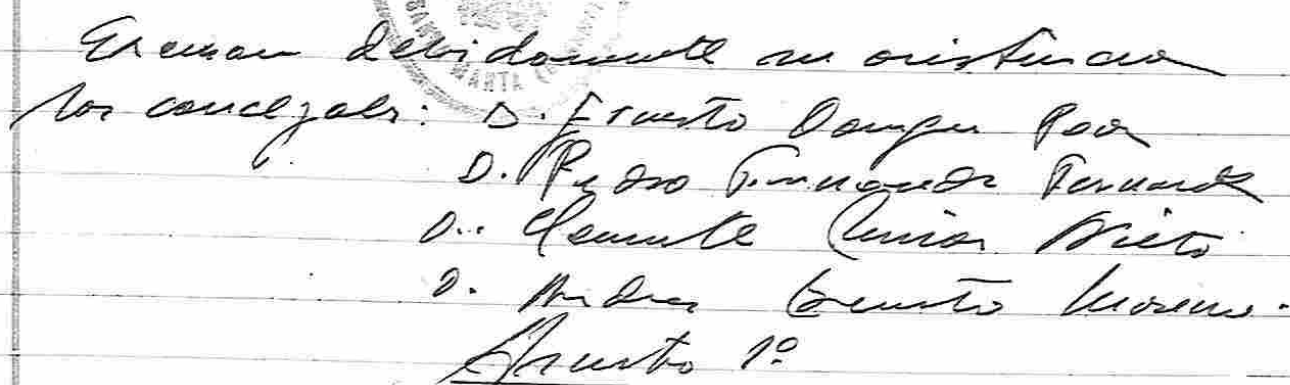 SANTA MARTA
Excusan debidamente su asistencia
los concejales: D. Ernesto
D. Pedro Fernandez Fernandez
D. Clemente Nieto
D. Andres Moreno.
Asunto 1º